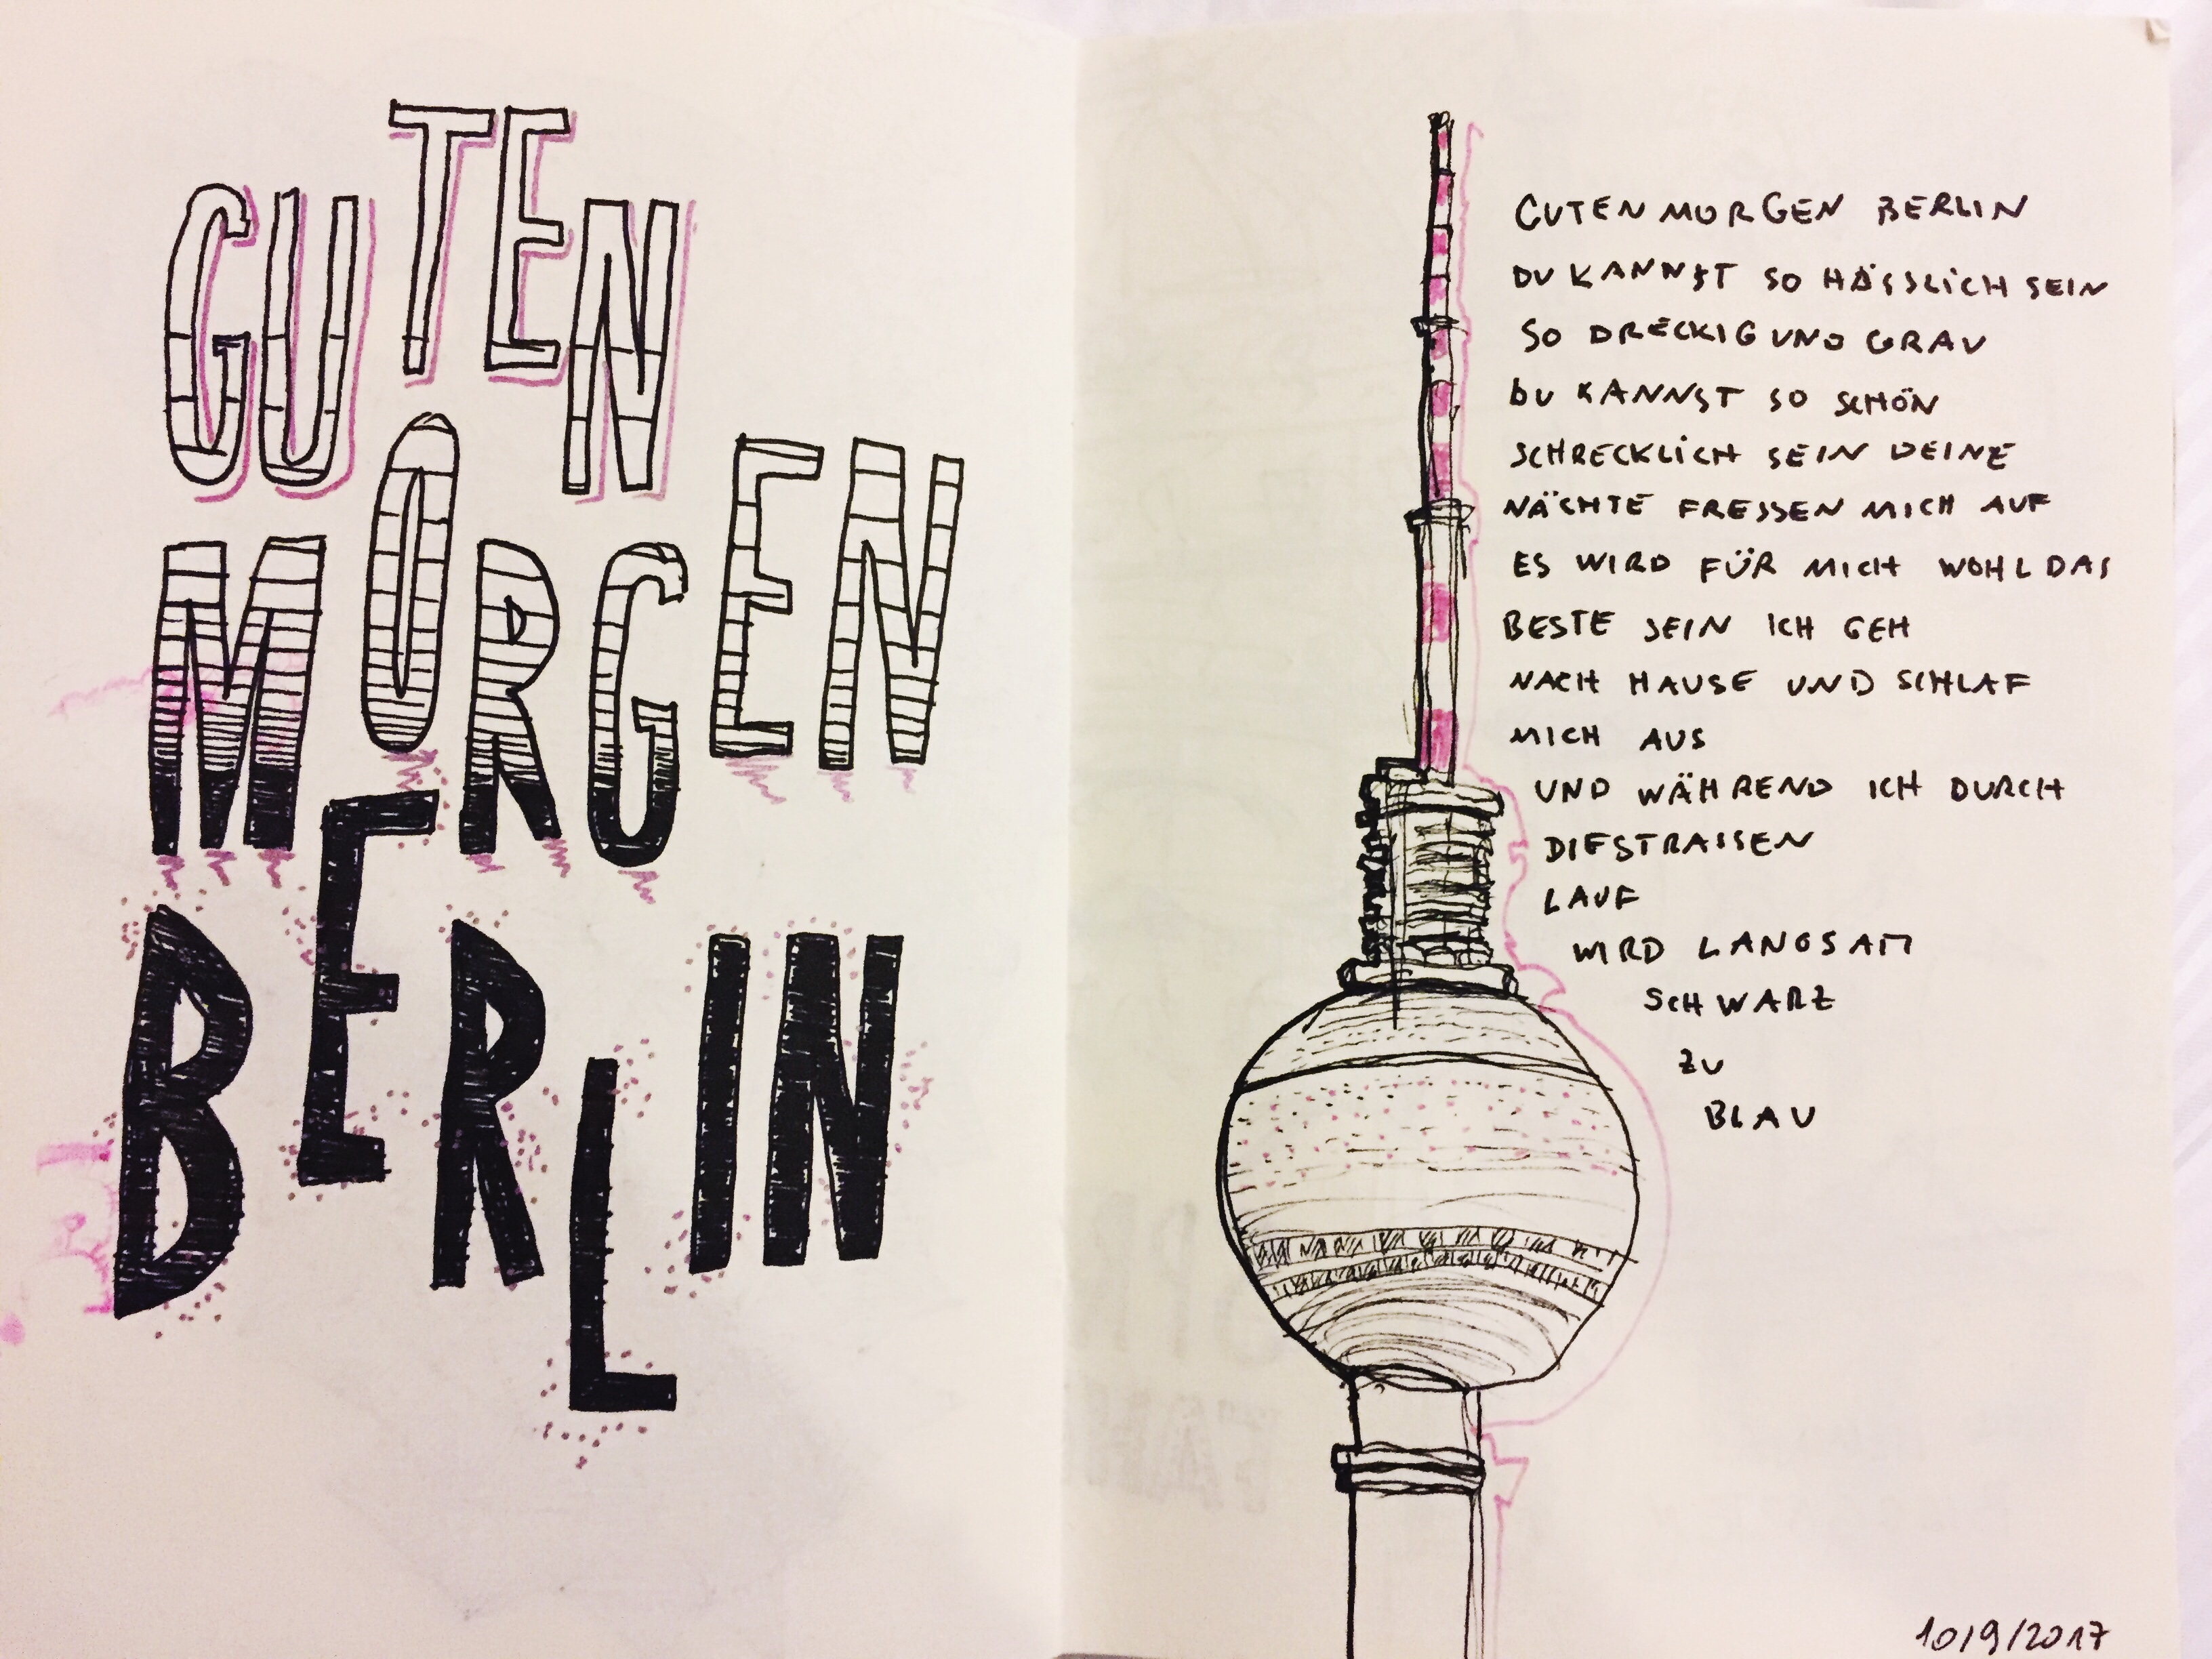 GUTEN
MORGEN
BERLIN
GUTEN MORGEN BERLIN
DU KANNST SO HÄSSLICH SEIN
SO DRECKIG UND GRAU
DU KANNST SO SCHÖN
SCHRECKLICH SEIN DEINE
NÄCHTE FRESSEN MICH AUF
ES WIRD FÜR MICH WOHL DAS
BESTE SEIN ICH GEH
NACH HAUSE UND SCHLAF
MICH AUS
UND WÄHREND ICH DURCH
DIE STRASSEN
LAUF
WIRD LANGSAM
SCHWARZ
ZU
BLAU
10/9/2017